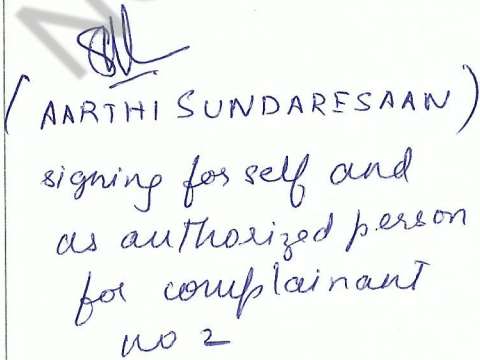 (AARTHI SUNDARESAAN)
signing for self and
as authorized person
for complainant
no 2